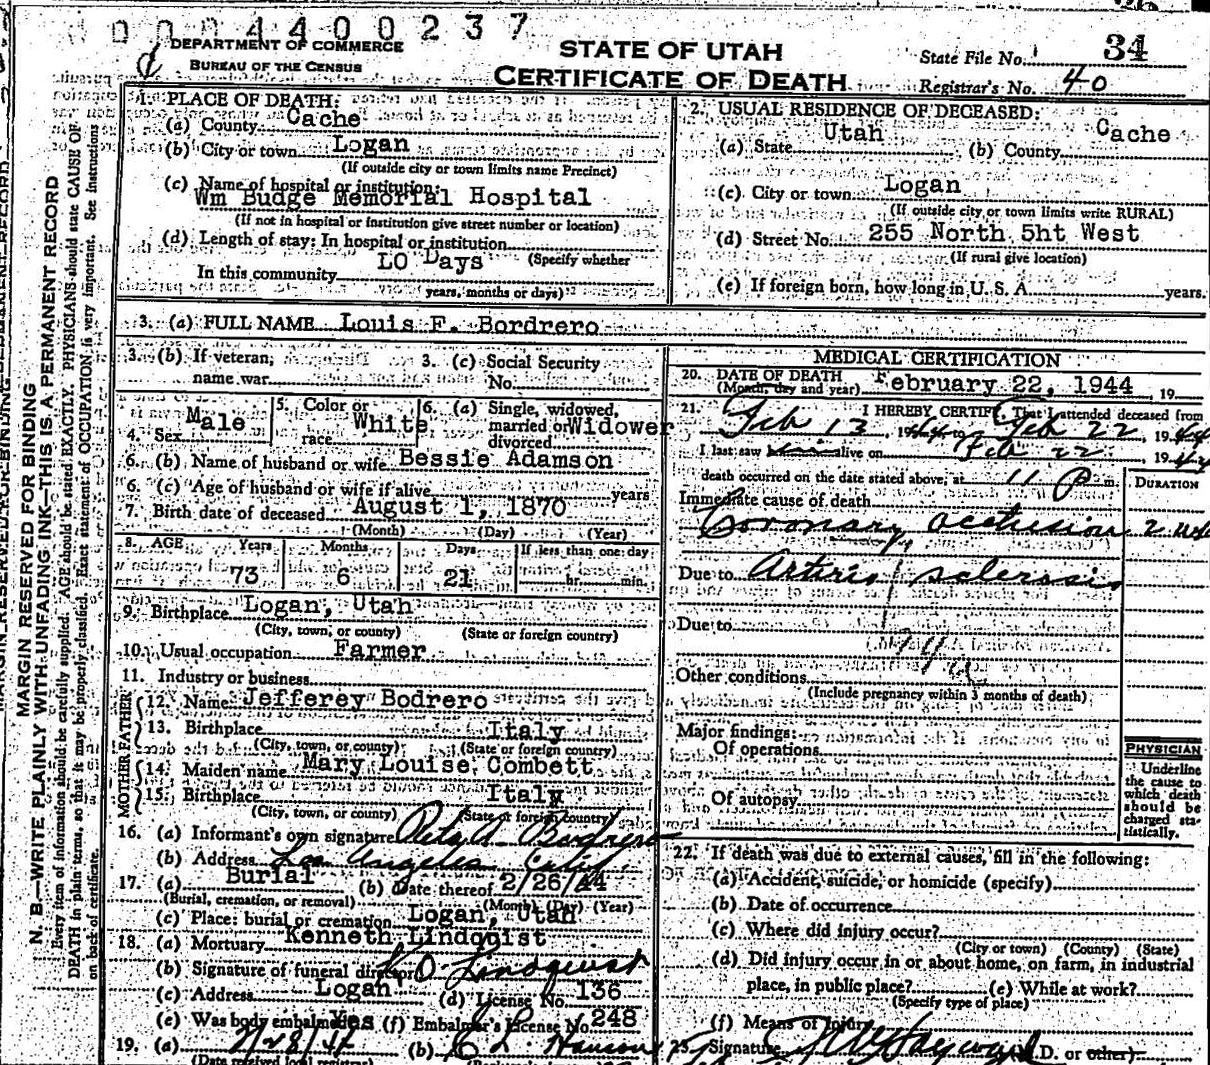 0004400237
DEPARTMENT OF COMMERCE
BUREAU OF THE CENSUS
STATE OF UTAH
CERTIFICATE OF DEATH
State File No. 34
Registrar's No. 40
MARGIN RESERVED FOR BINDING
N. B.—WRITE PLAINLY WITH UNFADING INK—THIS IS A PERMANENT RECORD
Every item of information should be carefully supplied. AGE should be stated EXACTLY. PHYSICIANS should state CAUSE OF
DEATH in plain terms, so that it may be properly classified. Exact statement of OCCUPATION is very important. See instructions
on back of certificate.
1. PLACE OF DEATH:
(a) County Cache
(b) City or town Logan
(If outside city or town limits name Precinct)
(c) Name of hospital or institution:
Wm Budge Memorial Hospital
(If not in hospital or institution give street number or location)
(d) Length of stay: In hospital or institution
LO Days (Specify whether
In this community
years, months or days)
2. USUAL RESIDENCE OF DECEASED:
(a) State Utah (b) County Cache
(c) City or town Logan
(If outside city or town limits write RURAL)
(d) Street No. 255 North 5ht West
(If rural give location)
(e) If foreign born, how long in U. S. A. years.
3. (a) FULL NAME Louis F. Bordrero
3. (b) If veteran, name war
3. (c) Social Security No.
4. Sex Male
5. Color or race White
6. (a) Single, widowed, married or divorced Widower
6. (b) Name of husband or wife Bessie Adamson
6. (c) Age of husband or wife if alive years
7. Birth date of deceased August 1, 1870
(Month) (Day) (Year)
8. AGE Years Months Days If less than one day
73 6 21 hr. min.
9. Birthplace Logan, Utah
(City, town, or county) (State or foreign country)
10. Usual occupation Farmer
11. Industry or business
FATHER
12. Name Jefferey Bodrero
13. Birthplace Italy
(City, town, or county) (State or foreign country)
MOTHER
14. Maiden name Mary Louise Combett
15. Birthplace Italy
(City, town, or county) (State or foreign country)
16. (a) Informant's own signature Bodrero
(b) Address Los Angeles Calif
17. (a) Burial (b) Date thereof 2/26/44
(Burial, cremation, or removal) (Month) (Day) (Year)
(c) Place: burial or cremation Logan, Utah
18. (a) Mortuary Kenneth Lindqist
(b) Signature of funeral director K O Lindquist
(c) Address Logan (d) License No. 136
(e) Was body embalmed? Yes (f) Embalmer's License No. 248
19. (a) 2/28/44 (b) C L Hanson
(Date received local registrar)
MEDICAL CERTIFICATION
20. DATE OF DEATH February 22, 1944, 19
(Month, day and year)
21. I HEREBY CERTIFY, That I attended deceased from
Feb 13, 1944 to Feb 22, 1944
I last saw him alive on Feb 22, 1944
death occurred on the date stated above, at 11 P m.
DURATION
Immediate cause of death
Coronary occlusion 2 wks
Due to Arterio sclerosis
Due to
94a
Other conditions
(Include pregnancy within 3 months of death)
Major findings:
Of operations
Of autopsy
PHYSICIAN
Underline
the cause to
which death
should be
charged sta-
tistically.
22. If death was due to external causes, fill in the following:
(a) Accident, suicide, or homicide (specify)
(b) Date of occurrence
(c) Where did injury occur?
(City or town) (County) (State)
(d) Did injury occur in or about home, on farm, in industrial
place, in public place? (e) While at work?
(Specify type of place)
(f) Means of injury
23. Signature Hayward (M.D. or other)